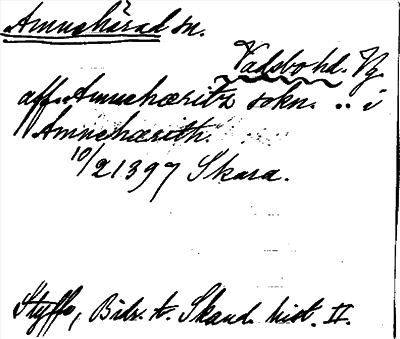 Amnehärad sn.
Vadsbo hd. Vg
aff Amnehæritz sokn. .. i
Amnehærith.
10/2 1397 Skara.
Styffe, Bidr. t. Skand. hist. II.